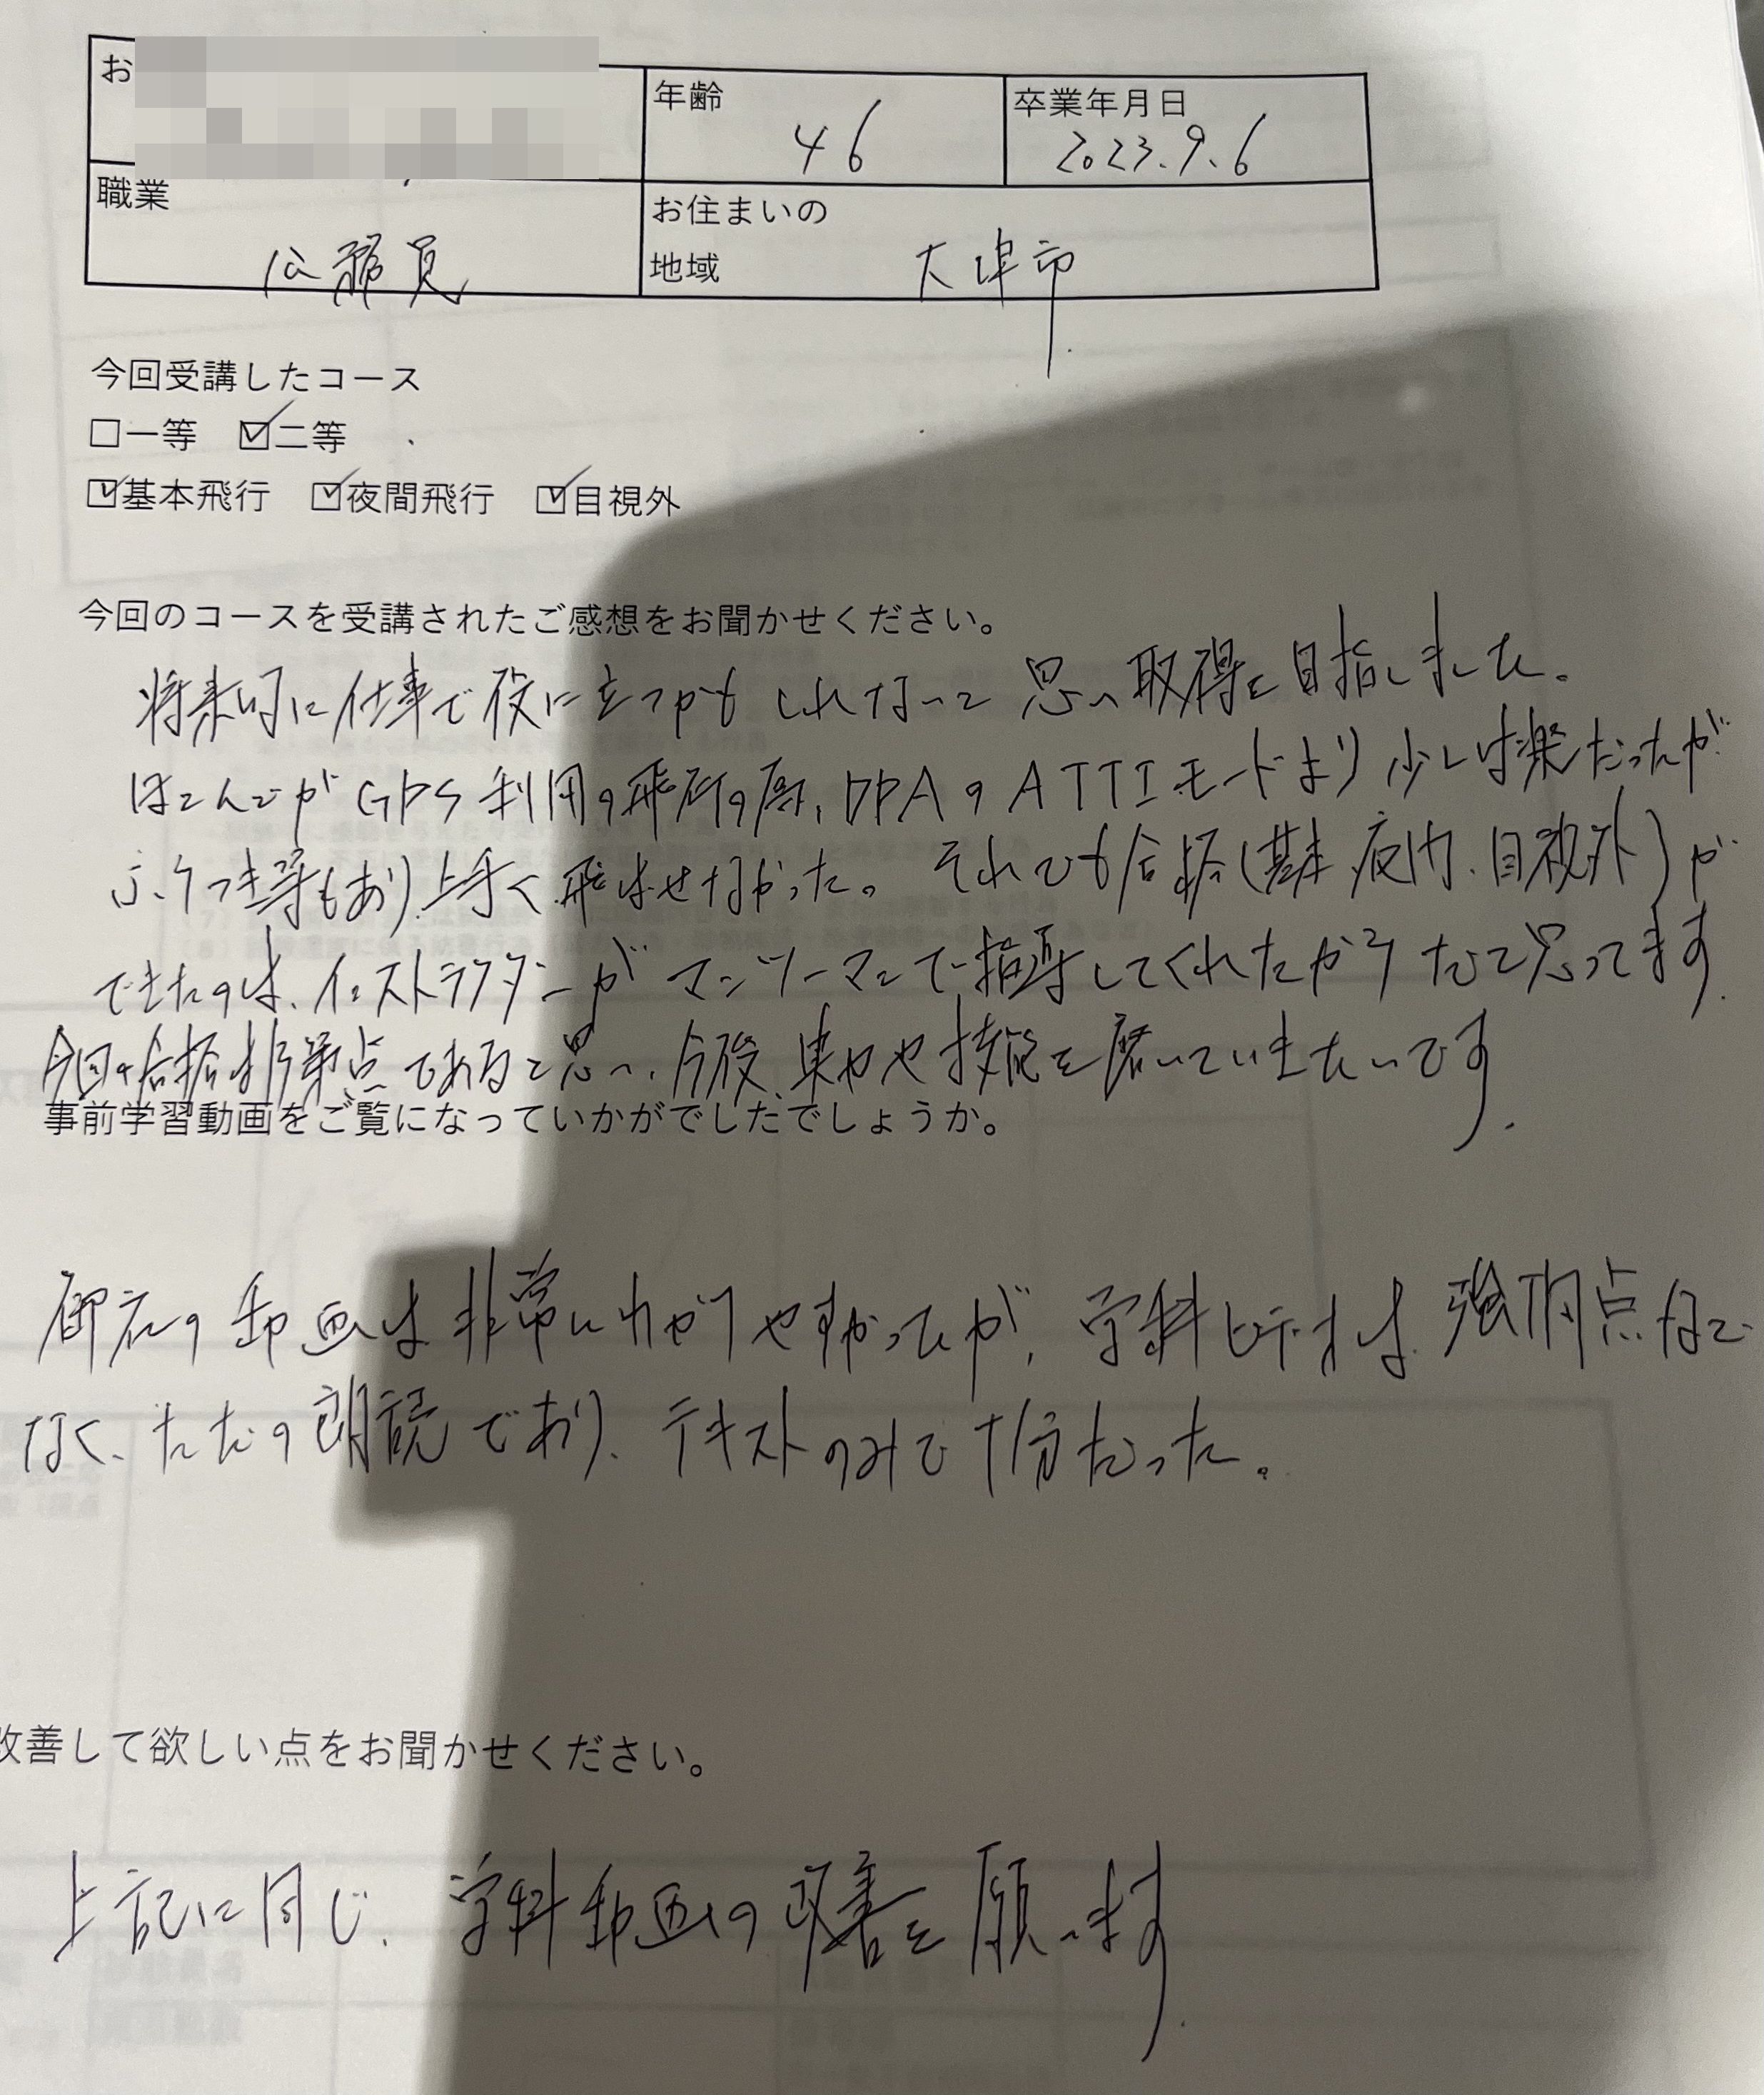 お
年齢
46
卒業年月日
2023.9.6
職業
公務員
お住まいの
地域
大津市
今回受講したコース
□一等 ☑二等
☑基本飛行 ☑夜間飛行 ☑目視外
今回のコースを受講されたご感想をお聞かせください。
将来的に仕事で役に立つかもしれないと思い取得を目指しました。
ほとんどがGPS利用の飛行の為、DPAのATTIモードより少しは楽だったが
ふらつき等もあり、上手く飛ばせなかった。それでも合格(基本、夜間、目視外)が
できたのは、インストラクターがマンツーマンで指導してくれたからだと思ってます。
今回の合格は第点であると思い、今後、実力や技能を磨いていきたいです。
事前学習動画をご覧になっていかがでしたでしょうか。
御社の動画は非常にわかりやすかったが、学科ビデオは、強調点など
なく、ただの朗読であり、テキストのみで十分だった。
改善して欲しい点をお聞かせください。
上記に同じ、学科動画の改善を願います。